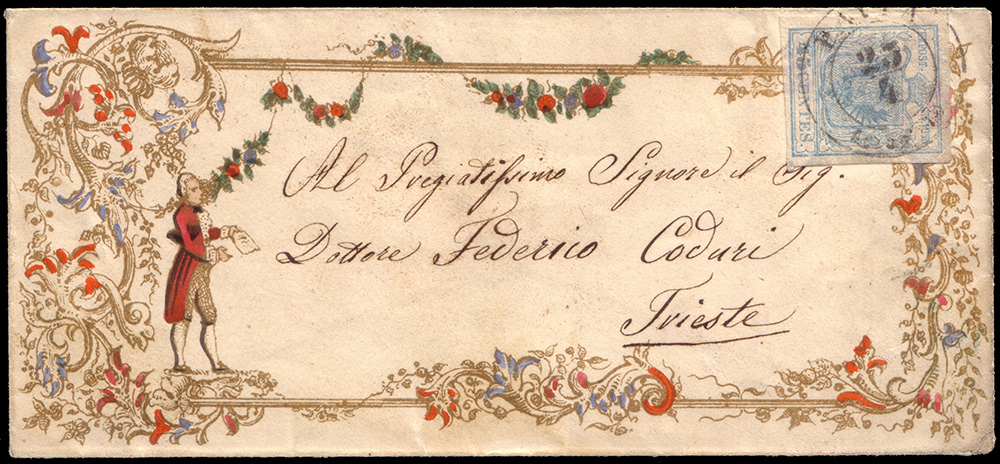 Al Pregiatissimo Signore il Sig.
Dottore Federico Coduri
Trieste
23
4